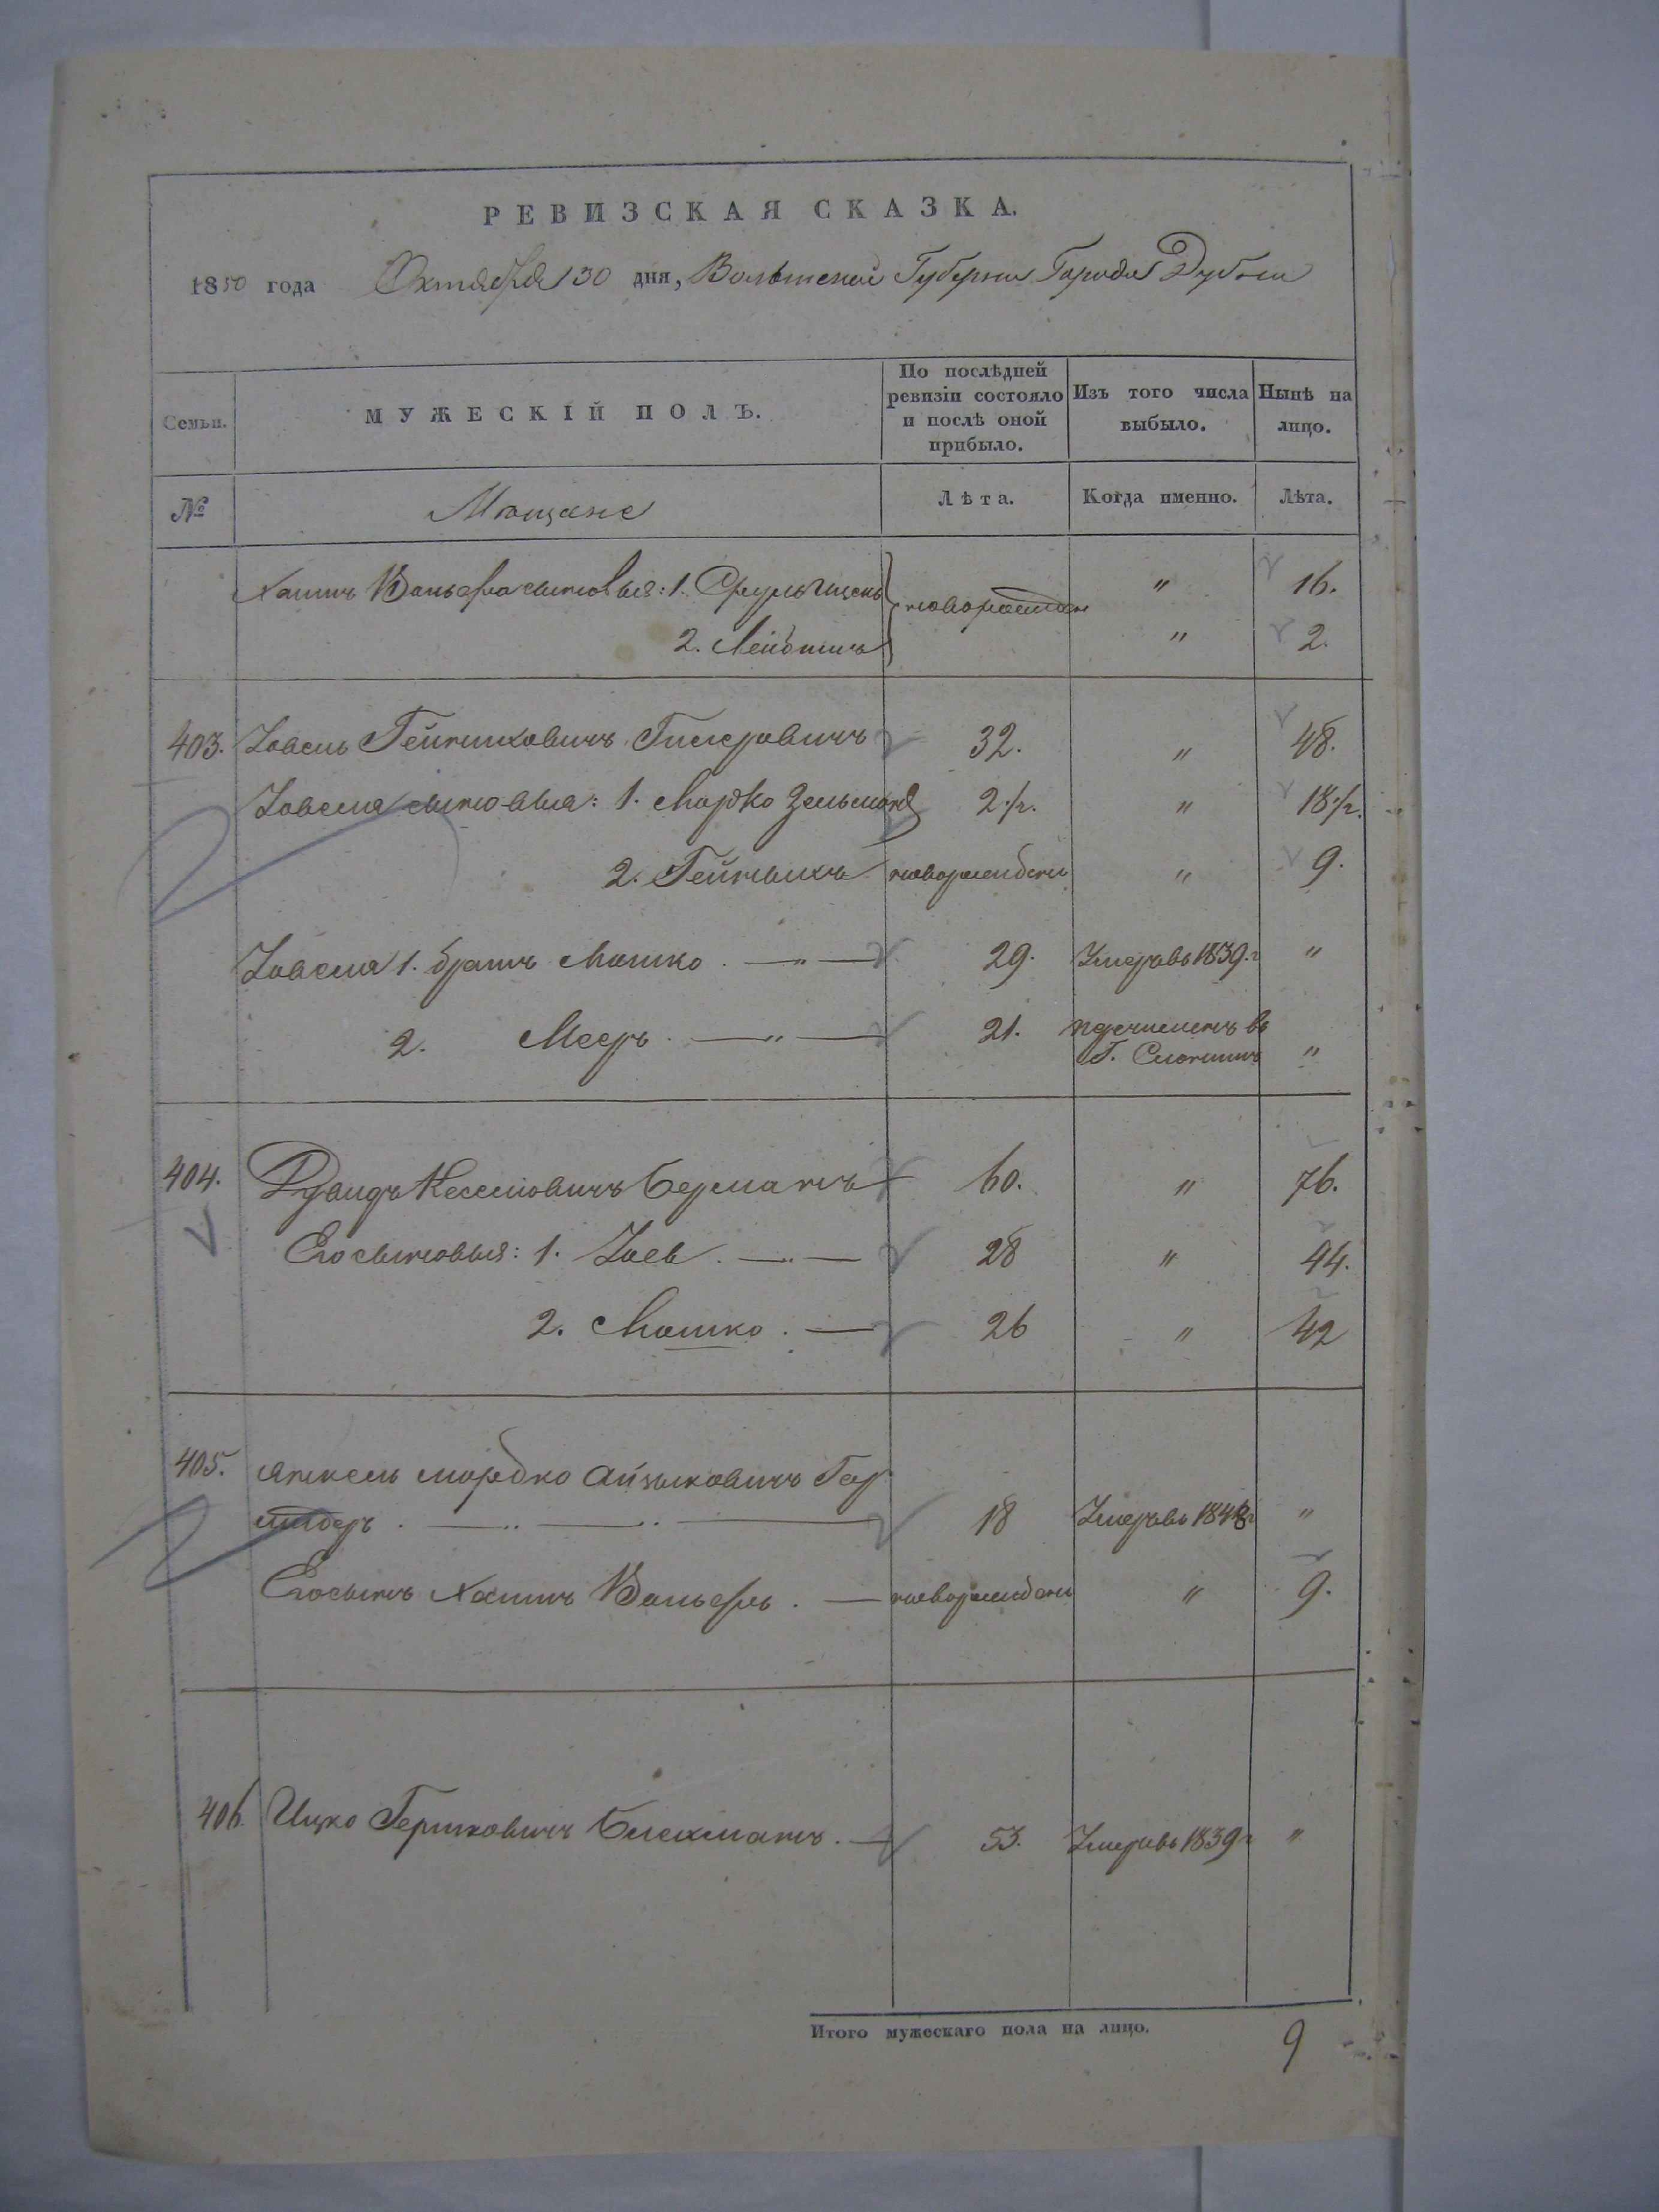 РЕВИЗСКАЯ СКАЗКА.
1850 года Октября 30 дня, Волынской Губернии Города Дубна
Семьи. МУЖЕСКІЙ ПОЛЪ. По послѣдней ревизіи состояло и послѣ оной прибыло. Изъ того числа выбыло. Нынѣ на лицо.
№ Мещане Лѣта. Когда именно. Лѣта.
Хаимъ Вольфа сыновья: 1. Сруль " 16.
2. Лейбишъ " 2.
403. Іовель Гейниховичъ 32. " 48.
Іовеля сыновья: 1. Мордко Зельманъ 2 ½. " 18 ½.
2. Гейныхъ новорожденъ " 9.
Іовеля 1. братъ Мошко 29. Умеръ въ 1839.г "
2. Мееръ 21. въ
Г. "
404. Дувидъ Берманъ 60. " 76.
Его сыновья: 1. 28 " 44.
2. Мошко 26 " 42
405. Янкель Мордко Айзыковичъ Гер
18 Умеръ въ "
Его сынъ Хаимъ Вольфъ новорожденъ " 9.
406. Ицко Гершковичъ 53. Умеръ въ 1839 г "
Итого мужескаго пола на лицо. 9